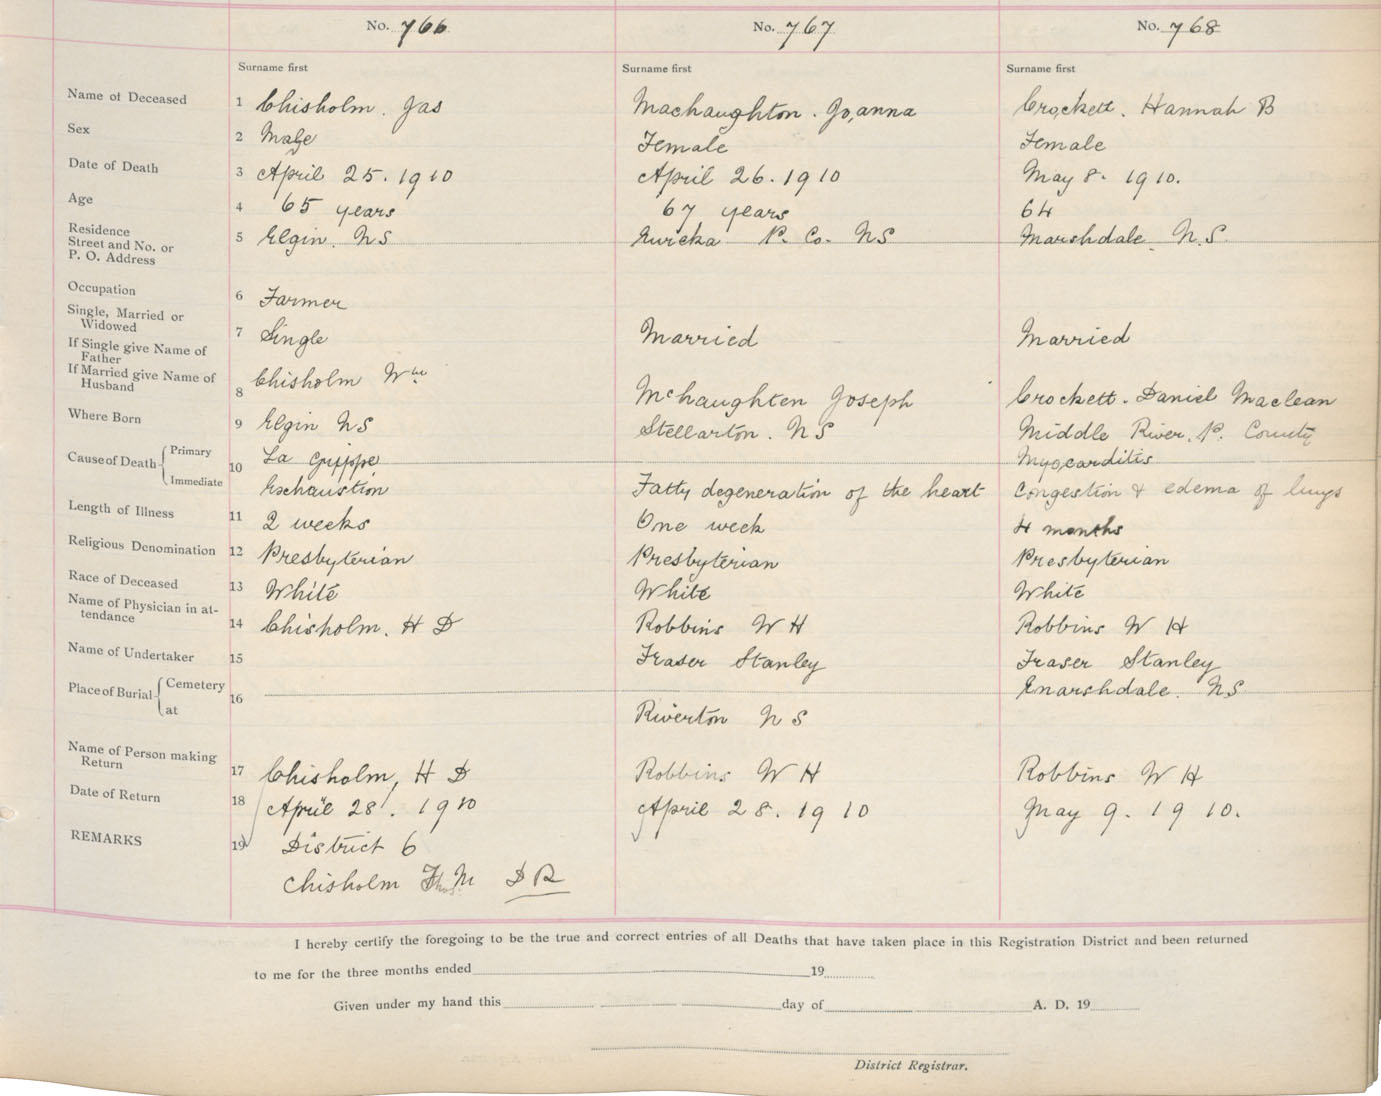 No. 766 No. 767 No. 768
Surname first Surname first Surname first
Name of Deceased 1 Chisholm. Jas MacNaughton. Joanna Crockett. Hannah B
Sex 2 Male Female Female
Date of Death 3 April 25. 1910 April 26. 1910 May 8. 1910.
Age 4 65 years 67 years 64
Residence
Street and No. or 5 Elgin. NS Eureka P. Co. NS Marshdale. N.S.
P. O. Address
Occupation 6 Farmer
Single, Married or
Widowed 7 Single Married Married
If Single give Name of
Father
If Married give Name of
Husband 8 Chisholm Wm McNaughten Joseph Crockett. Daniel Maclean
Where Born 9 Elgin NS Stellarton. NS Middle River. P. County
Cause of Death Primary 10 La Grippe Myocarditis
Immediate Exhaustion Fatty degeneration of the heart Congestion & edema of lungs
Length of Illness 11 2 weeks One week 4 months
Religious Denomination 12 Presbyterian Presbyterian Presbyterian
Race of Deceased 13 White White White
Name of Physician in at-
tendance 14 Chisholm. H D Robbins W H Robbins W H
Name of Undertaker 15 Fraser Stanley Fraser Stanley
Place of Burial Cemetery 16 Marshdale. NS
at Riverton NS
Name of Person making
Return 17 Chisholm, H D Robbins W H Robbins W H
Date of Return 18 April 28. 1910 April 28. 1910 May 9. 1910.
REMARKS 19 District 6
Chisholm M DR
I hereby certify the foregoing to be the true and correct entries of all Deaths that have taken place in this Registration District and been returned
to me for the three months ended 19
Given under my hand this day of A. D. 19
District Registrar.